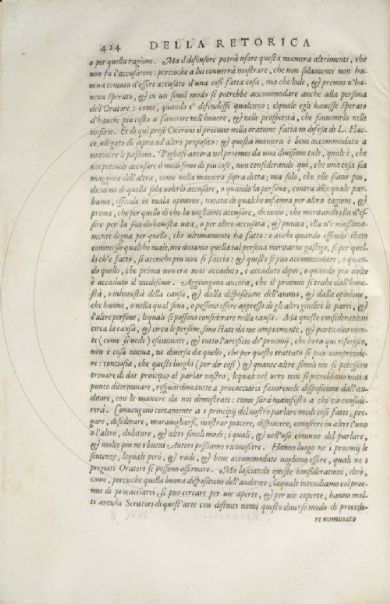 424 DELLA RETORICA
o per quella ragione. Ma il difensore potrà usare questa maniera altrimenti, che
non fa l'accusatore: percioche a lui converrà mostrare, che non solamente non ha-
d'essere accusato d'una cosi fatta cosa, ma che lode, & premio n'ha-
& in un simil modo si potrebbe accommodare anche alla persona
dell'Oratore: come, quando e' difendesse qualcuno: ilquale egli havesse sperato
d'havere piu tosto a favorire nell'honore, & nelle prosperità, che sovvenirlo nelle
miserie. Et di qui prese Cicerone il proemio nella oratione fatta in difesa di L. Flac-
co, allegato di sopra ad altro proposito: & questa maniera è bene accommodata a
muovere le passioni. Pigliasi ancora nel proemio da una divisione tale, quale è, che
piu cose, non considerando qui, che una cosa sia
maggiore dell'altra, come nella maniera sopra detta: ma solo, che elle siano piu,
o quando la persona, contra alla quale par-
liamo, essendo in mala opinione, notata di qualche infamia per altra cagione, &
prima, che per quello di che la vogliamo accusare, diciamo, che meritando ella d'es-
sere per la sua vita, o per altro accusata; & punita, ella n'è
mente degna per quello, che ultimamente ha fatto: o anche quando essendo stato
commesso qualche male, noi diciamo quella tal persona meritarne gastigo, si per quel-
lo ch'e' fatto, si accioche piu non si faccia: & questo si puo accommodare, o quan-
do quello, che prima non era mai accaduto, e accaduto dipoi, o quando piu volte
è accaduto il medesimo. Aggiungono ancora, che il proemio si trahe dall'hone-
stà, o inhonestà della causa, & dalla dispositione dell'animo, & dalla opinione,
che hanno, o nella qual sono, o possono essere appresso de gli altri i giudici le parti, &
l'altre persone, lequali si possono considerare nella causa. Ma queste considerationi
circa la causa, & circa le persone, sono state da me ampiamente, & particolarmen-
te (come si vede) esaminate, & tutto l'artificio de' proemij, che hora qui riferisco,
non è cosa nuova, ne diversa da quello, che per questo trattato si può comprende-
re: conciosia, che questi luoghi (per dir cosi) & quante altre simili ne si potessero
trovare da dar principio al parlar nostro, le quali nel vero non si potrebbono mai a
punto determinare, risguardino tutte a procacciarci favorevole dispositione dall'au-
ditore, con le maniere da noi dimostrate: come sarà manifesto a chi ciò conside-
rerà. Convengono certamente a i principij del nostro parlare modi cosi fatti, pre-
gare, desiderare, maravigliarsi, mostrar piacere, dispiacere, conferire in altri l'uno
o l'altro, dubitare, & altri simili modi; i quali, & nell'uso comune del parlare,
& molto piu ne i buoni Autori possiamo riconoscere. Hanno luogo ne i proemij le
sentenze, lequali però, & rade, & bene accommodate vogliono essere, quali ne i
pregiati Oratori si possono osservare. Ma lasciando queste considerationi, dirò,
come, percioche quella buona dispositione dell'auditore, laquale intendiamo col proe-
mio di procacciarci, si può cercare per vie aperte, & per vie coperte, hanno mol-
ti antichi Scrittori di quest'arte con distinti nomi questo diverso modo di procede-
re nominato